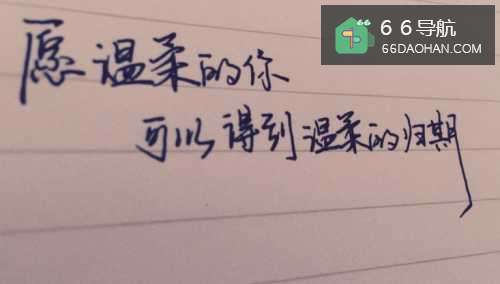 66导航
66DAOHAN.COM
「愿温柔的你
可以得到温柔的归期」